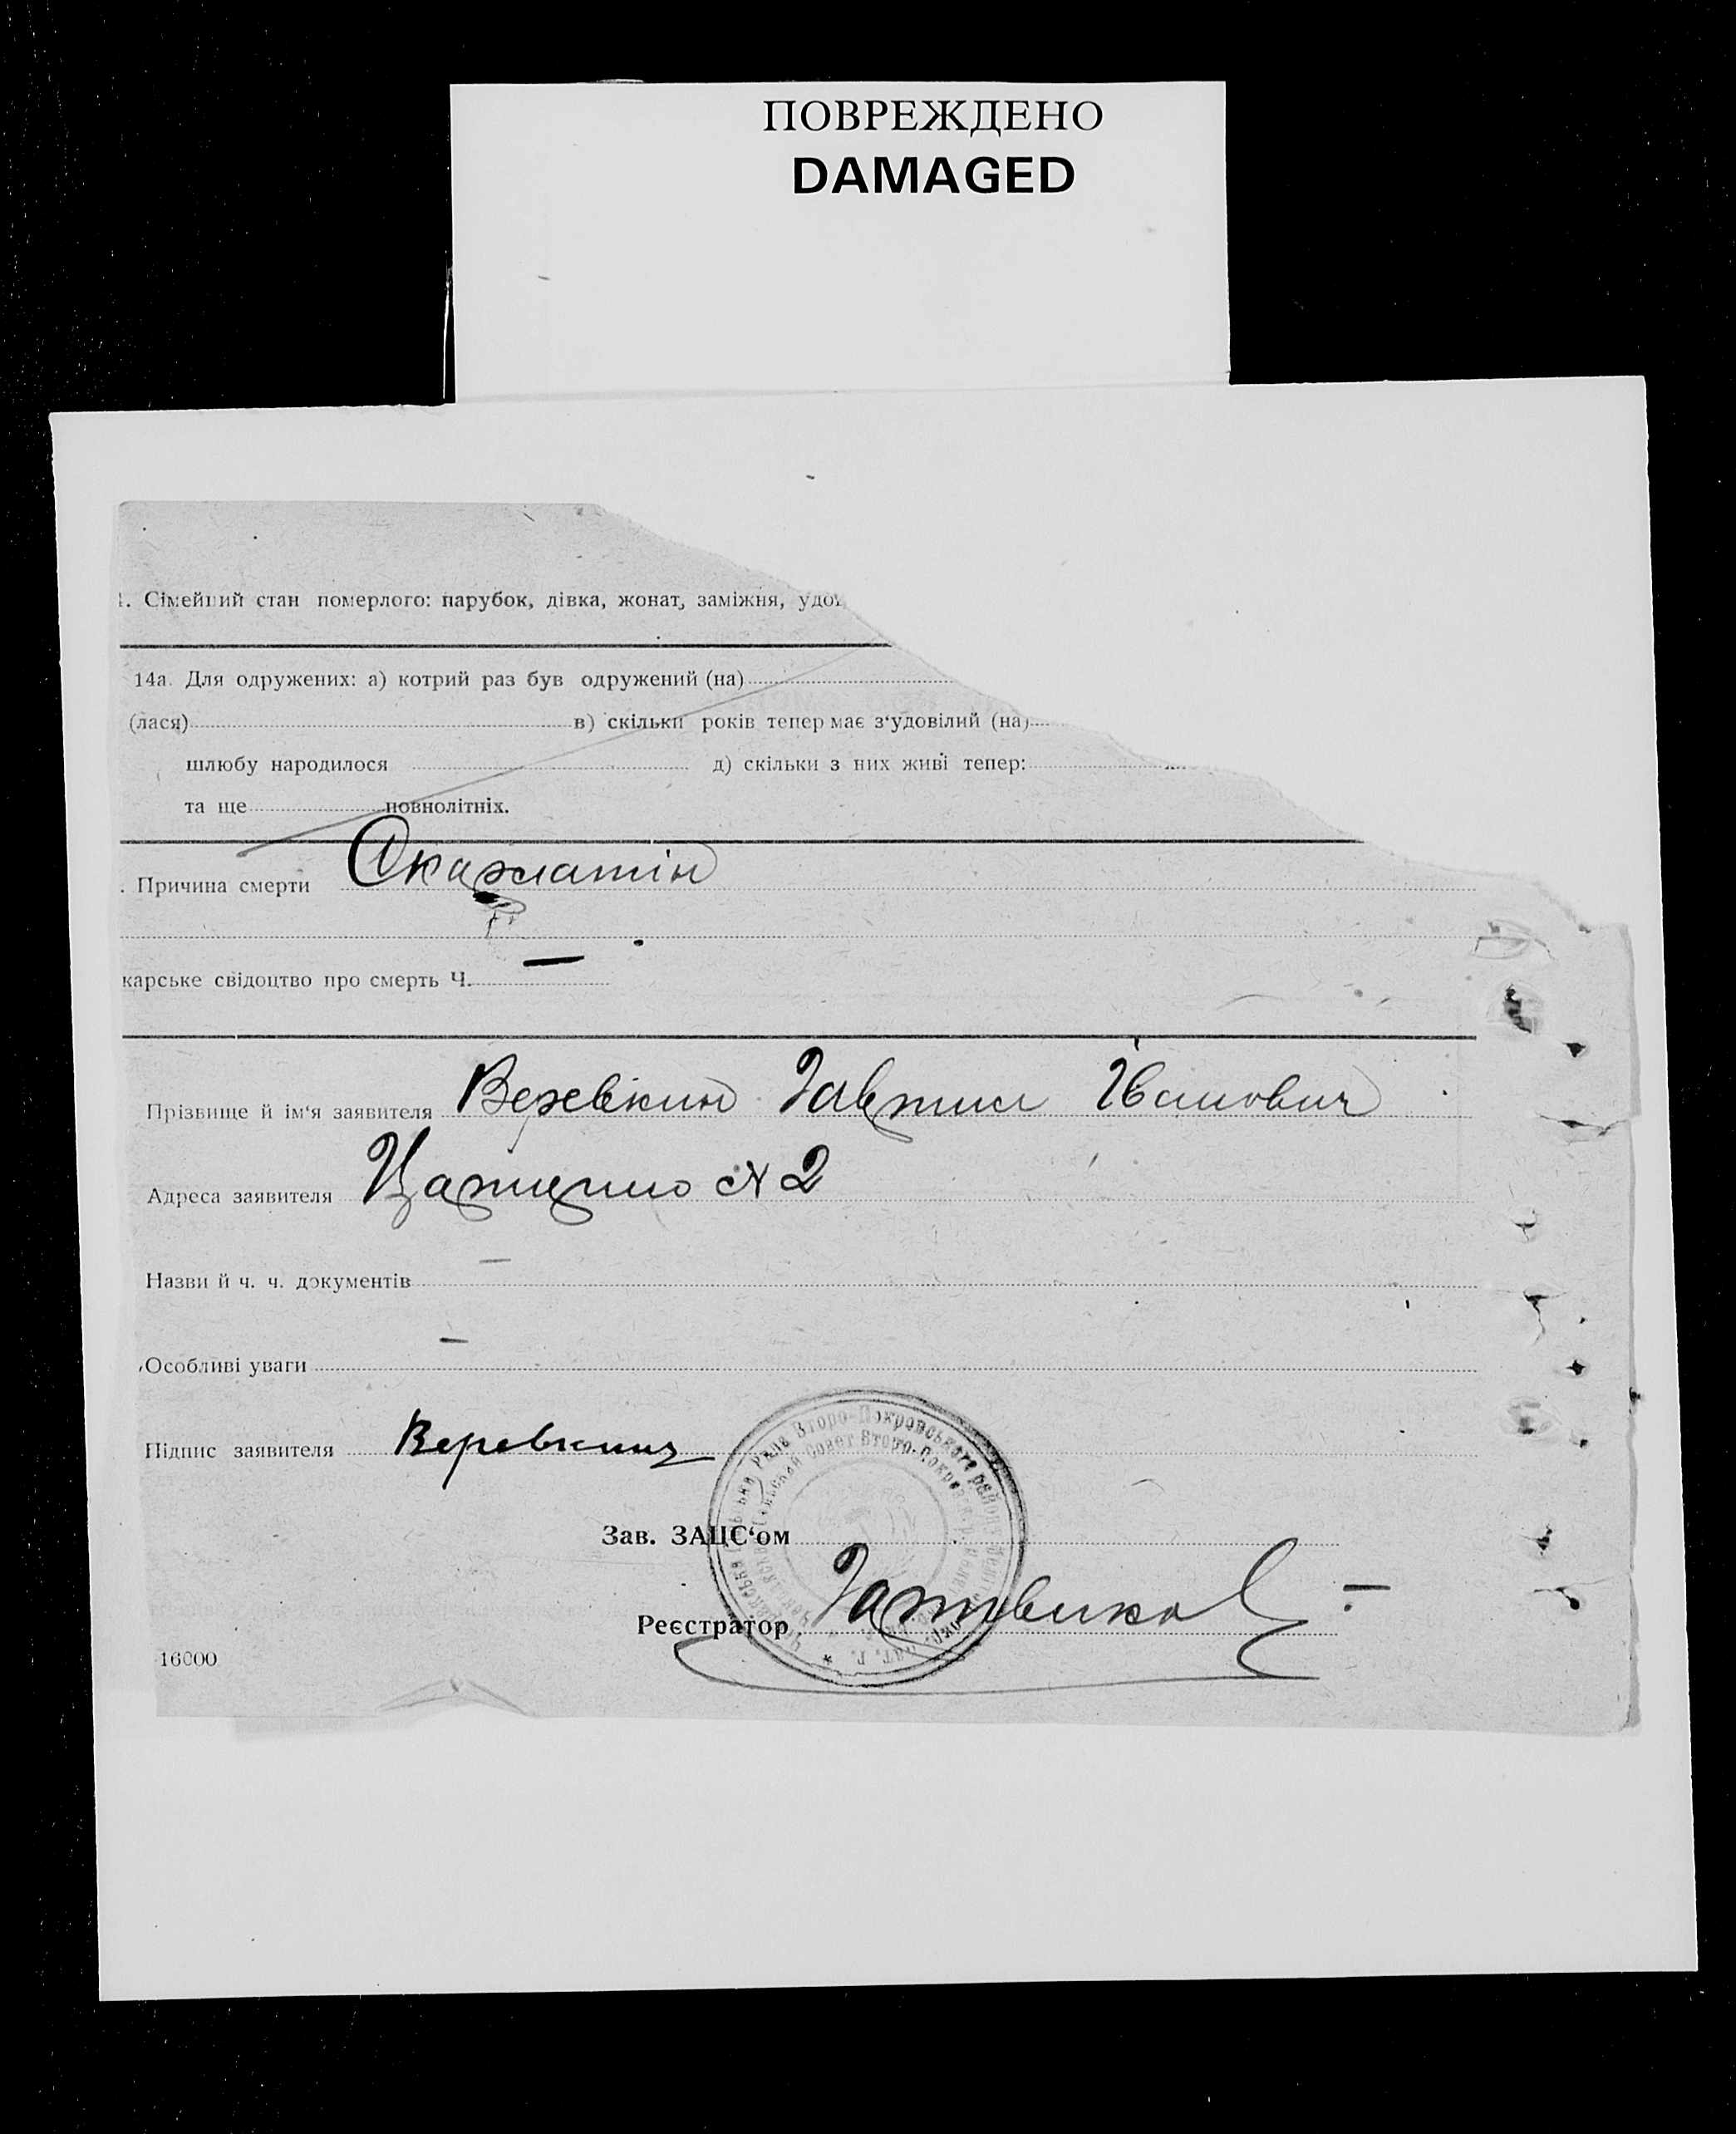 ПОВРЕЖДЕНО
DAMAGED
Сімейний стан померлого: парубок, дівка, жонат, заміжня, удов
14а. Для одружених: а) котрий раз був одружений (на)
(лася) в) скільки років тепер має з‘удовілий (на)
шлюбу народилося д) скільки з них живі тепер:
та ще повнолітніх.
Причина смерти Скарлатін
карське свідоцтво про смерть Ч. —
Прізвище й ім‘я заявителя Веревкин Іванович
Адреса заявителя №2
Назви й ч. ч. документів —
Особливі уваги —
Підпис заявителя Веревкин
Рада Второ-Покровського
Совет Второ-Покров
Зав. ЗАЦС‘ом
Реєстратор
16000